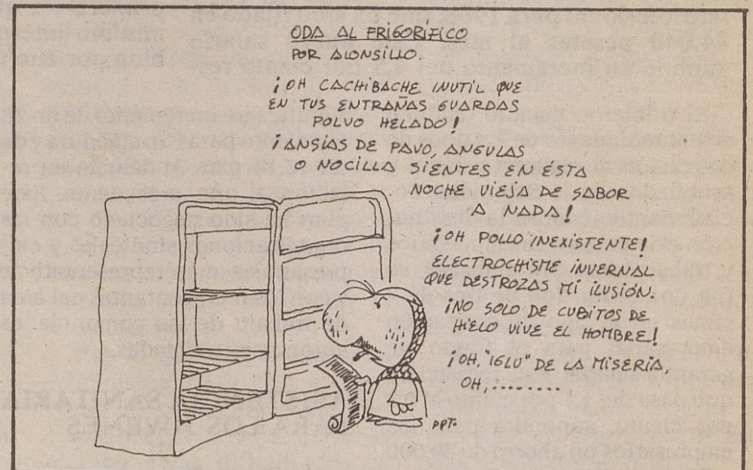 ODA AL FRIGORIFICO
POR ALONSILLO.
¡OH CACHIBACHE INUTIL QUE
EN TUS ENTRAÑAS GUARDAS
POLVO HELADO!
¡ANSIAS DE PAVO, ANGULAS
O NOCILLA SIENTES EN ÉSTA
NOCHE VIEJA DE SABOR
A NADA!
¡OH POLLO INEXISTENTE!
ELECTROCHISME INVERNAL
QUE DESTROZAS MI ILUSIÓN.
¡NO SOLO DE CUBITOS DE
HIELO VIVE EL HOMBRE!
¡OH, "IGLU" DE LA MISERIA,
OH, ........
PPT.